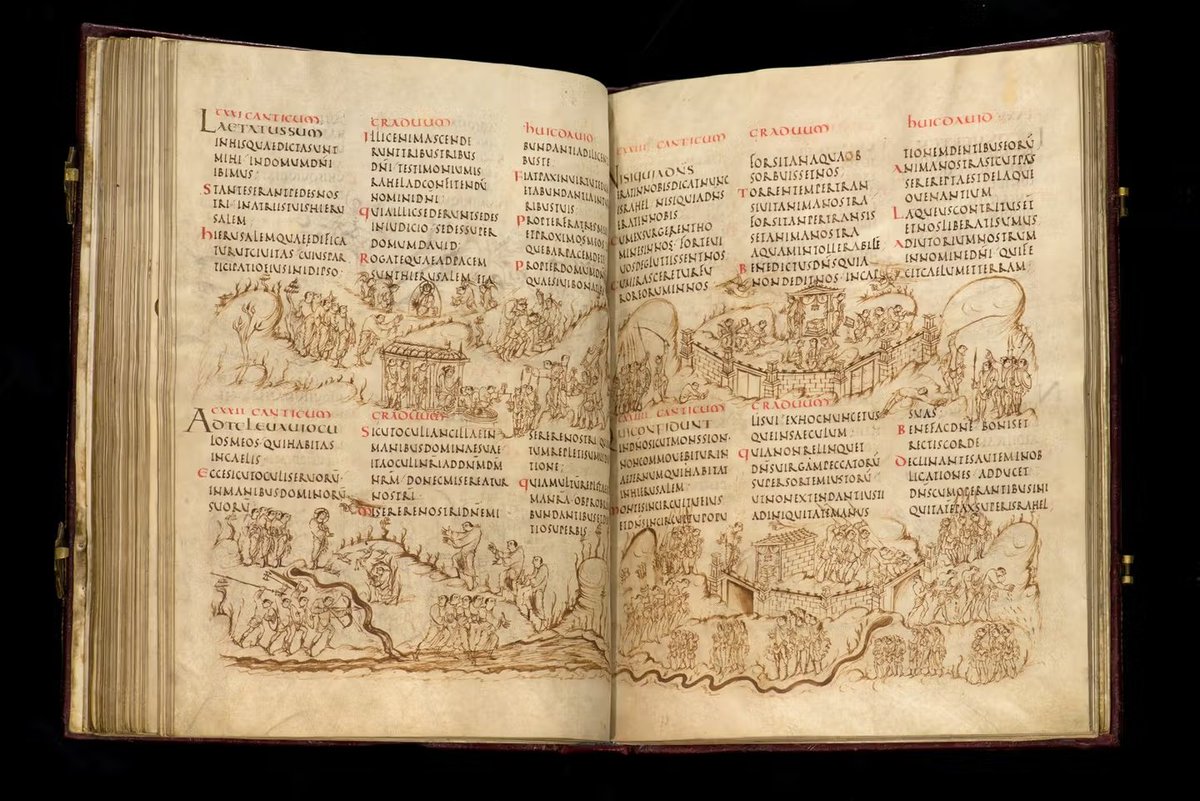 CXXI CANTICUM
LAETATUSSUM
INHISQUAEDICTASUNT
MIHI INDOMUMDNI
IBIMUS
STANTESERANTPEDESNOS
TRI INATRIISTUISHIERU
SALEM
HIERUSALEMQUAEDIFICA
TURUTCIVITAS CUIUSPAR
TICIPATIOEIUSINIDIPSO
GRADUUM
ILLICENIMASCENDE
RUNTTRIBUSTRIBUS
DNI TESTIMONIUMIS
RAHELADCONFITENDU
NOMINIDNI
QUIAILLICSEDERUNTSEDES
INIUDICIO SEDESSUPER
DOMUMDAVID
ROGATEQUAEADPACEM
SUNTHIERUSALEM ETA
HUICDAVID
BUNDANTIADILIGEN
BUSTE
FIATPAXINVIRTUTETUA
ETABUNDANTIAINTUR
RIBUSTUIS
PROPTERFRATRESMEOS
ETPROXIMOSMEOS
QUEBARPACEMDETE
PROPTERDOMUMDNI
QUAESIVIBONA
CXXII CANTICUM
ADTELEVAVIOCU
LOSMEOS QUIHABITAS
INCAELIS
ECCESICUTOCULISERVORU
INMANIBUSDOMINORU
SUORU
GRADUUM
SICUTOCULIANCILLAEIN
MANIBUSDOMINAESUAE
ITAOCULINRIADDNMDM
NRM DONECMISEREATUR
NOSTRI
MISERERENOSTRIDNEMI
SERERENOSTRI QU
TUMREPLETISUMUS
TIONE
QUIAMULTUREPLETA
MANRA OBPROBRI
BUNDANTIBUSET
TIOSUPERBIS
CXXIII CANTICUM
NISIQUIADNS
ERATINNOBISDICATNUNC
ISRAHEL NISIQUIADNS
ERATINNOBIS
CUMEXSURGERENTHO
MINESINNOS FORTEVI
VOSDEGLUTISSENTNOS
CUMIRASCERETURFU
ROREORUMINNOS
GRADUUM
FORSITANAQUAOB
SORBUISSETNOS
TORRENTEMPERTRAN
SIVITANIMANOSTRA
FORSITANPERTRANSIS
SETANIMANOSTRA
AQUAMINTOLLERABILE
BENEDICTUSDNSQUIA
NONDEDITNOS INCAP
HUICDAVID
TIONEMDENTIBUSEORU
ANIMANOSTRASICUTPAS
SEREREPTAESTDELAQUE
OVENANTIUM
LAQUEUSCONTRITUSET
ETNOSLIBERATISUMUS
ADIUTORIUMNOSTRUM
INNOMINEDNI QUIFE
CITCAELUMETTERRAM
CXXIIII CANTICUM
QUICONFIDUNT
INDNOSICUTMONSSION
NONCOMMOVEBITURIN
AETERNUMQUIHABITAT
INHIERUSALEM
MONTESINCIRCUITUEIUS
ETDNSINCIRCUITUPOPU
GRADUUM
LISUI EXHOCNUNCETUS
QUEINSAECULUM
QUIANONRELINQUET
DNSVIRGAMPECCATORU
SUPERSORTEMIUSTORU
UTNONEXTENDANTIUSTI
ADINIQUITATEMANUS
SUAS
BENEFACDNE BONISET
RECTISCORDE
DECLINANTESAUTEMINOB
LIGATIONES ADDUCET
DNSCUMOPERANTIBUSINI
QUITATEPAXSUPERISRAHEL